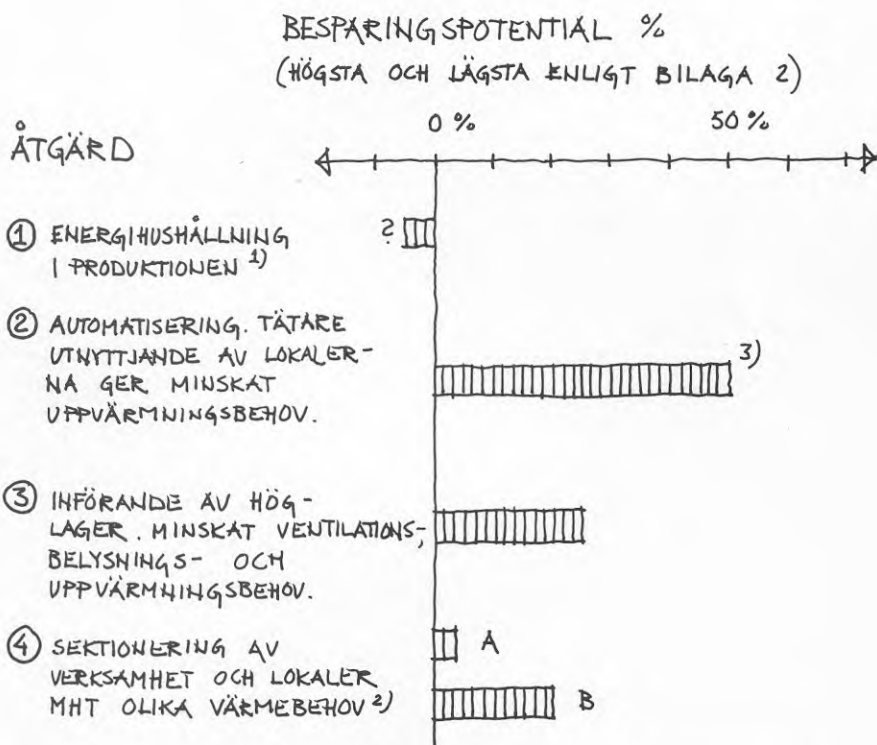 BESPARINGSPOTENTIAL %
(HÖGSTA OCH LÄGSTA ENLIGT BILAGA 2)
0 % 50 %
ÅTGÄRD
① ENERGIHUSHÅLLNING
I PRODUKTIONEN 1)
?
② AUTOMATISERING. TÄTARE
UTNYTTJANDE AV LOKALER-
NA GER MINSKAT
UPPVÄRMNINGSBEHOV.
3)
③ INFÖRANDE AV HÖG-
LAGER. MINSKAT VENTILATIONS-,
BELYSNINGS- OCH
UPPVÄRMNINGSBEHOV.
④ SEKTIONERING AV
VERKSAMHET OCH LOKALER
MHT OLIKA VÄRMEBEHOV 2)
A
B